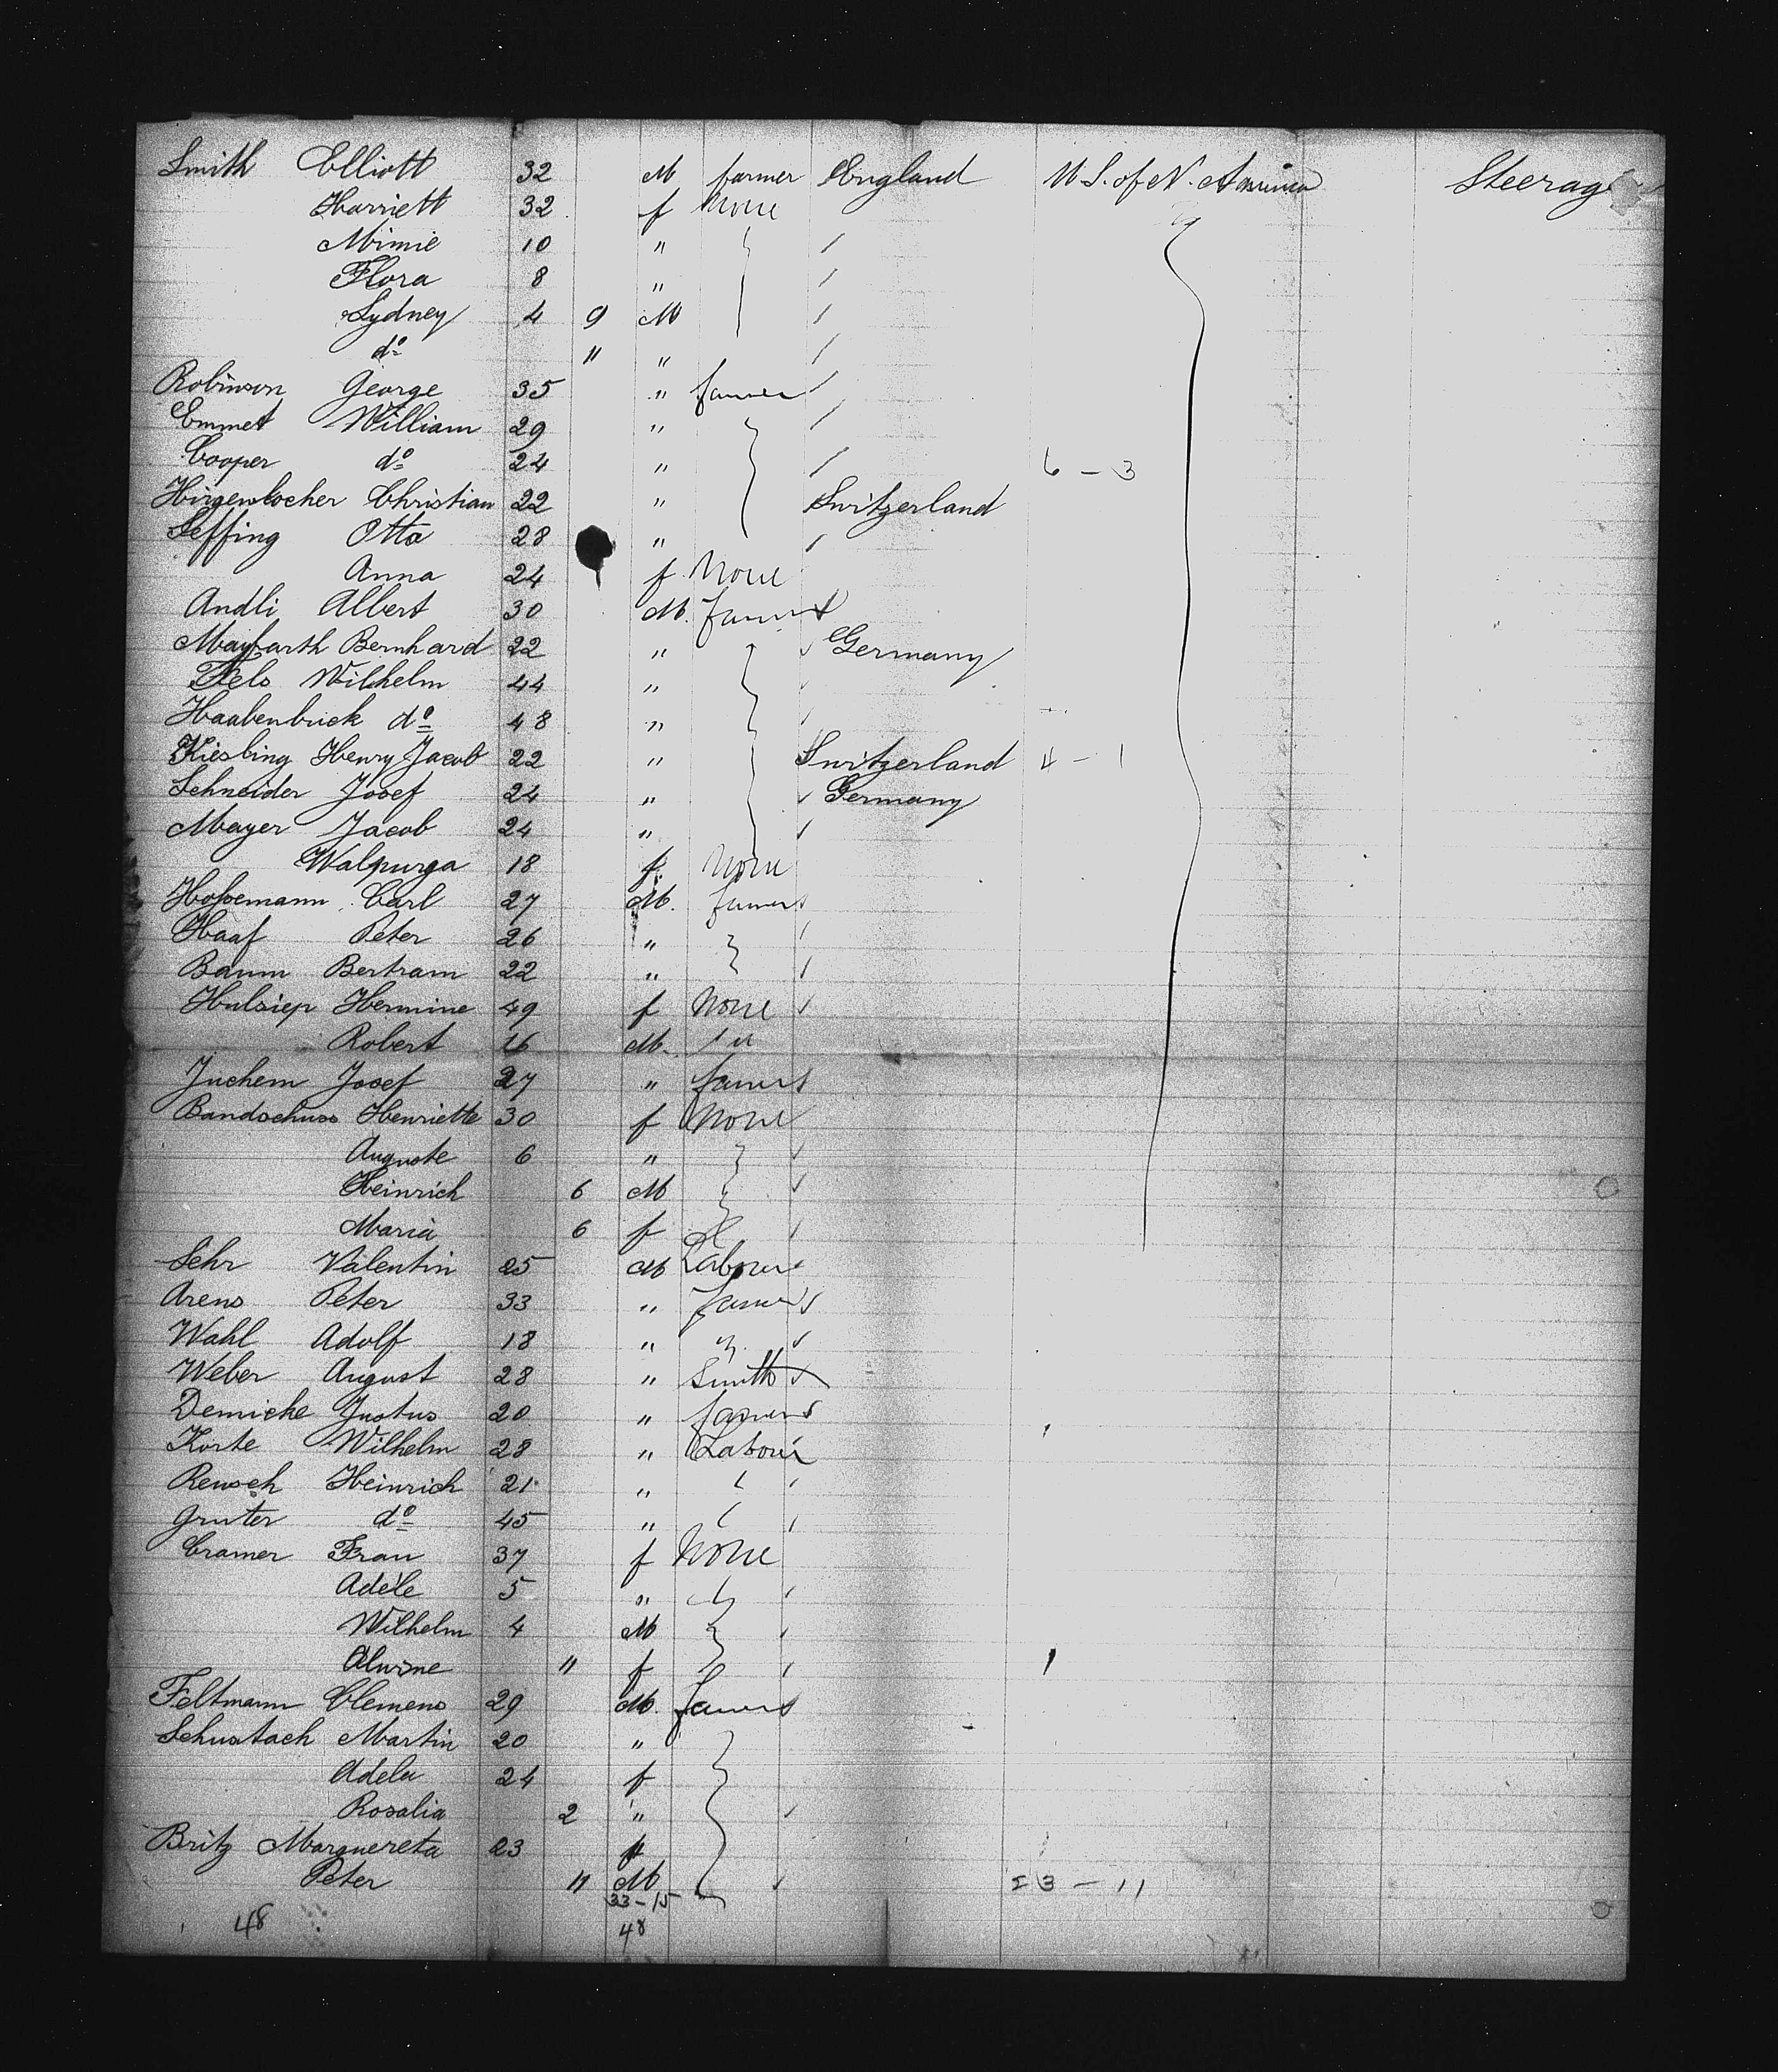 Smith Elliott 32 M farmer England U S. of N. America Steerage
Harriett 32 f None
Mimie 10 "
Flora 8 "
Sydney 4 9 M
do 11 "
Robinson George 35 " farmer
Emmet William 29 "
Cooper do 24 " 6 - 3
Hirgenlocher Christian 22 " Switzerland
Seffing Otto 28 "
Anna 24 f None
Andli Albert 30 M. farmer
Mayfarth Bernhard 22 " Germany
Fels Wilhelm 44 "
Haabenbrick do 48 "
Kiesling Henry Jacob 22 " Switzerland 4 - 1
Schneider Josef 24 " Germany
Mayer Jacob 24 "
Walpurga 18 f. None
Hossemann Carl 27 M. farmer
Haaf Peter 26 "
Baum Bertram 22 "
Hulsiep Hermine 49 f None
Robert 16 M. "
Juchem Josef 27 " farmer
Bandschuss Henriette 30 f None
Auguste 6 "
Heinrich 6 M
Maria 6 f
Sehr Valentin 25 M Labourer
Arens Peter 33 " farmer
Wahl Adolf 18 " "
Weber August 28 " Smith
Demicke Justus 20 " farmer
Korte Wilhelm 28 " Labour
Rensch Heinrich 21 "
Gruter do 45 "
Cramer Frau 37 f None
Adele 5 "
Wilhelm 4 M
Alwine 11 f
Feltmann Clemens 29 M. farmer
Schustach Martin 20 "
Adela 24 f
Rosalia 2 "
Britz Marguereta 23 f
Peter 11 M 23 - 11
33-15
48 48